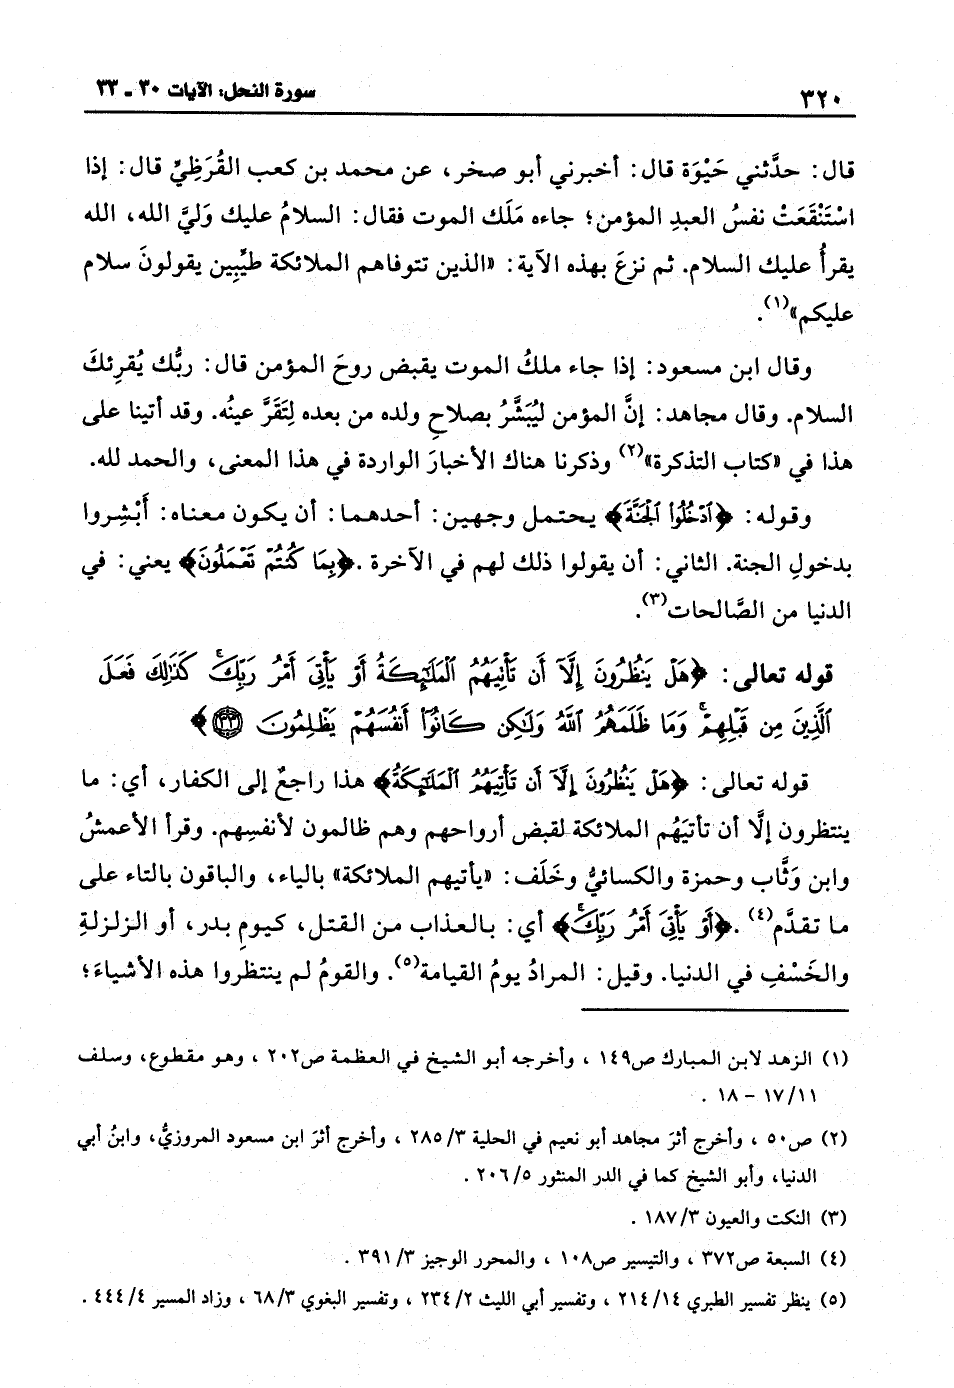 ٣٢٠
سورة النحل: الآيات ٣٠ ـ ٣٣
قال: حدَّثني حَيْوَة قال: أخبرني أبو صخر، عن محمد بن كعب القُرَظِيِّ قال: إذا
اسْتَنْقَعَتْ نفسُ العبدِ المؤمن؛ جاءه مَلَك الموت فقال: السلامُ عليك وَليَّ الله، الله
يقرأُ عليك السلام. ثم نزعَ بهذه الآية: «الذين تتوفاهم الملائكة طيِّبِين يقولونَ سلام
عليكم»(١).
وقال ابن مسعود: إذا جاء ملكُ الموت يقبض روحَ المؤمن قال: ربُّك يُقرِئكَ
السلام. وقال مجاهد: إنَّ المؤمن ليُبَشَّرُ بصلاحِ ولده من بعده لِتَقَرَّ عينُه. وقد أتينا على
هذا في «كتاب التذكرة»(٢) وذكرنا هناك الأخبارَ الواردة في هذا المعنى، والحمد لله.
وقوله: ﴿ٱدْخُلُوا۟ ٱلْجَنَّةَ﴾ يحتمل وجهين: أحدهما: أن يكون معناه: أَبْشِروا
بدخولِ الجنة. الثاني: أن يقولوا ذلك لهم في الآخرة. ﴿بِمَا كُنتُمْ تَعْمَلُونَ﴾ يعني: في
الدنيا من الصَّالحات(٣).
قوله تعالى: ﴿هَلْ يَنظُرُونَ إِلَّآ أَن تَأْتِيَهُمُ ٱلْمَلَٰٓئِكَةُ أَوْ يَأْتِىَ أَمْرُ رَبِّكَ ۚ كَذَٰلِكَ فَعَلَ
ٱلَّذِينَ مِن قَبْلِهِمْ ۚ وَمَا ظَلَمَهُمُ ٱللَّهُ وَلَٰكِن كَانُوٓا۟ أَنفُسَهُمْ يَظْلِمُونَ ٣٣﴾
قوله تعالى: ﴿هَلْ يَنظُرُونَ إِلَّآ أَن تَأْتِيَهُمُ ٱلْمَلَٰٓئِكَةُ﴾ هذا راجعٌ إلى الكفار، أي: ما
ينتظرون إلَّا أن تأتيَهُم الملائكة لقبض أرواحهم وهم ظالمون لأنفسِهم. وقرأ الأعمشُ
وابن وَثَّاب وحمزة والكسائيُّ وخَلَف: «يأتيهم الملائكة» بالياء، والباقون بالتاء على
ما تقدَّم(٤). ﴿أَوْ يَأْتِىَ أَمْرُ رَبِّكَ ۚ﴾ أي: بالعذاب من القتل، كيومِ بدر، أو الزلزلةِ
والخَسْفِ في الدنيا. وقيل: المرادُ يومُ القيامة(٥). والقومُ لم ينتظروا هذه الأشياءَ؛
(١) الزهد لابن المبارك ص١٤٩ ، وأخرجه أبو الشيخ في العظمة ص٢٠٢ ، وهو مقطوع، وسلف
١١/ ١٧ – ١٨ .
(٢) ص٥٠ ، وأخرج أثرَ مجاهد أبو نعيم في الحلية ٣/ ٢٨٥ ، وأخرج أثرَ ابن مسعود المروزيُّ، وابنُ أبي
الدنيا، وأبو الشيخ كما في الدر المنثور ٥/ ٢٠٦ .
(٣) النكت والعيون ٣/ ١٨٧ .
(٤) السبعة ص٣٧٢ ، والتيسير ص١٠٨ ، والمحرر الوجيز ٣/ ٣٩١ .
(٥) ينظر تفسير الطبري ١٤/ ٢١٤ ، وتفسير أبي الليث ٢/ ٢٣٤ ، وتفسير البغوي ٣/ ٦٨ ، وزاد المسير ٤/ ٤٤٤ .